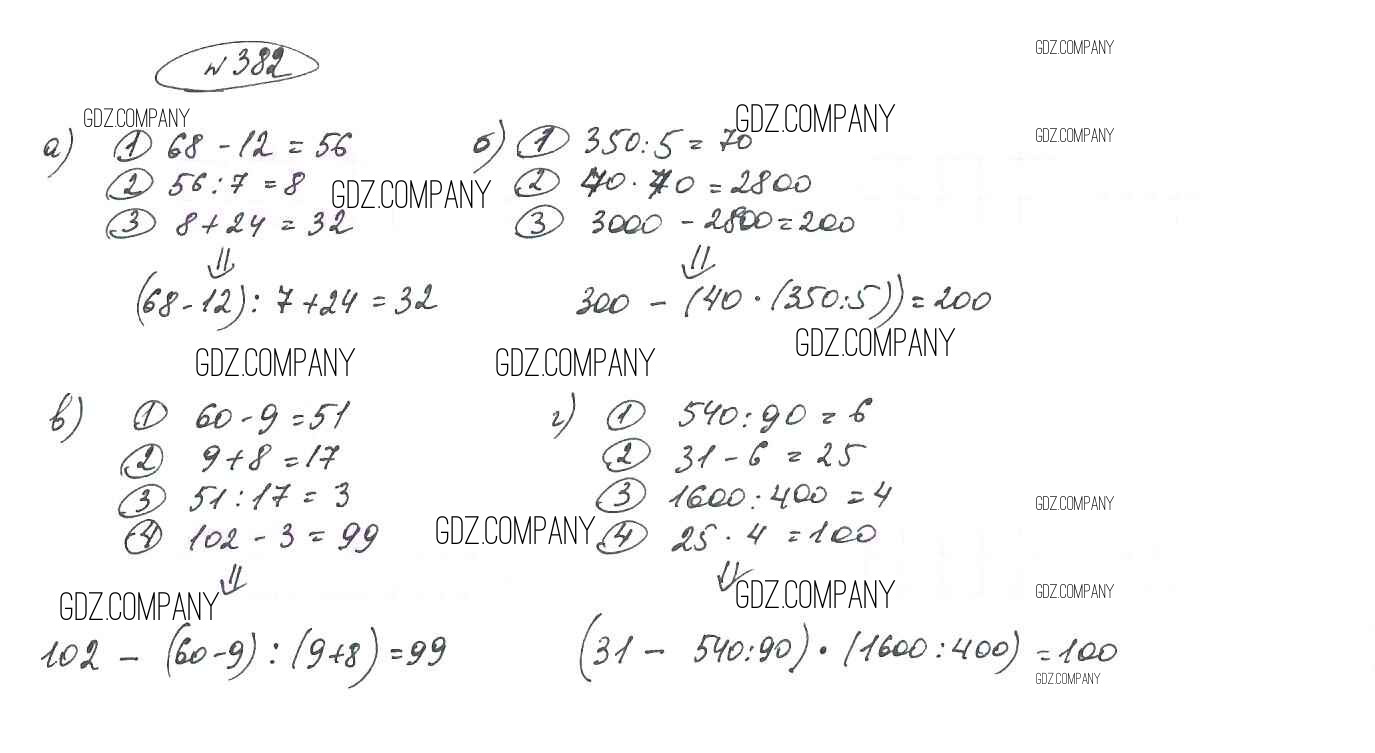 № 382
GDZ.COMPANY
GDZ.COMPANY
GDZ.COMPANY
GDZ.COMPANY
а) 1 68 - 12 = 56
2 56 : 7 = 8
3 8 + 24 = 32
⇓
(68 - 12) : 7 + 24 = 32
GDZ.COMPANY
б) 1 350 : 5 = 70
2 40 · 70 = 2800
3 3000 - 2800 = 200
⇓
300 - (40 · (350 : 5)) = 200
GDZ.COMPANY
GDZ.COMPANY
GDZ.COMPANY
в) 1 60 - 9 = 51
2 9 + 8 = 17
3 51 : 17 = 3
4 102 - 3 = 99
⇓
102 - (60 - 9) : (9 + 8) = 99
г) 1 540 : 90 = 6
2 31 - 6 = 25
3 1600 : 400 = 4
4 25 · 4 = 100
⇓
(31 - 540 : 90) · (1600 : 400) = 100
GDZ.COMPANY
GDZ.COMPANY
GDZ.COMPANY
GDZ.COMPANY
GDZ.COMPANY
GDZ.COMPANY